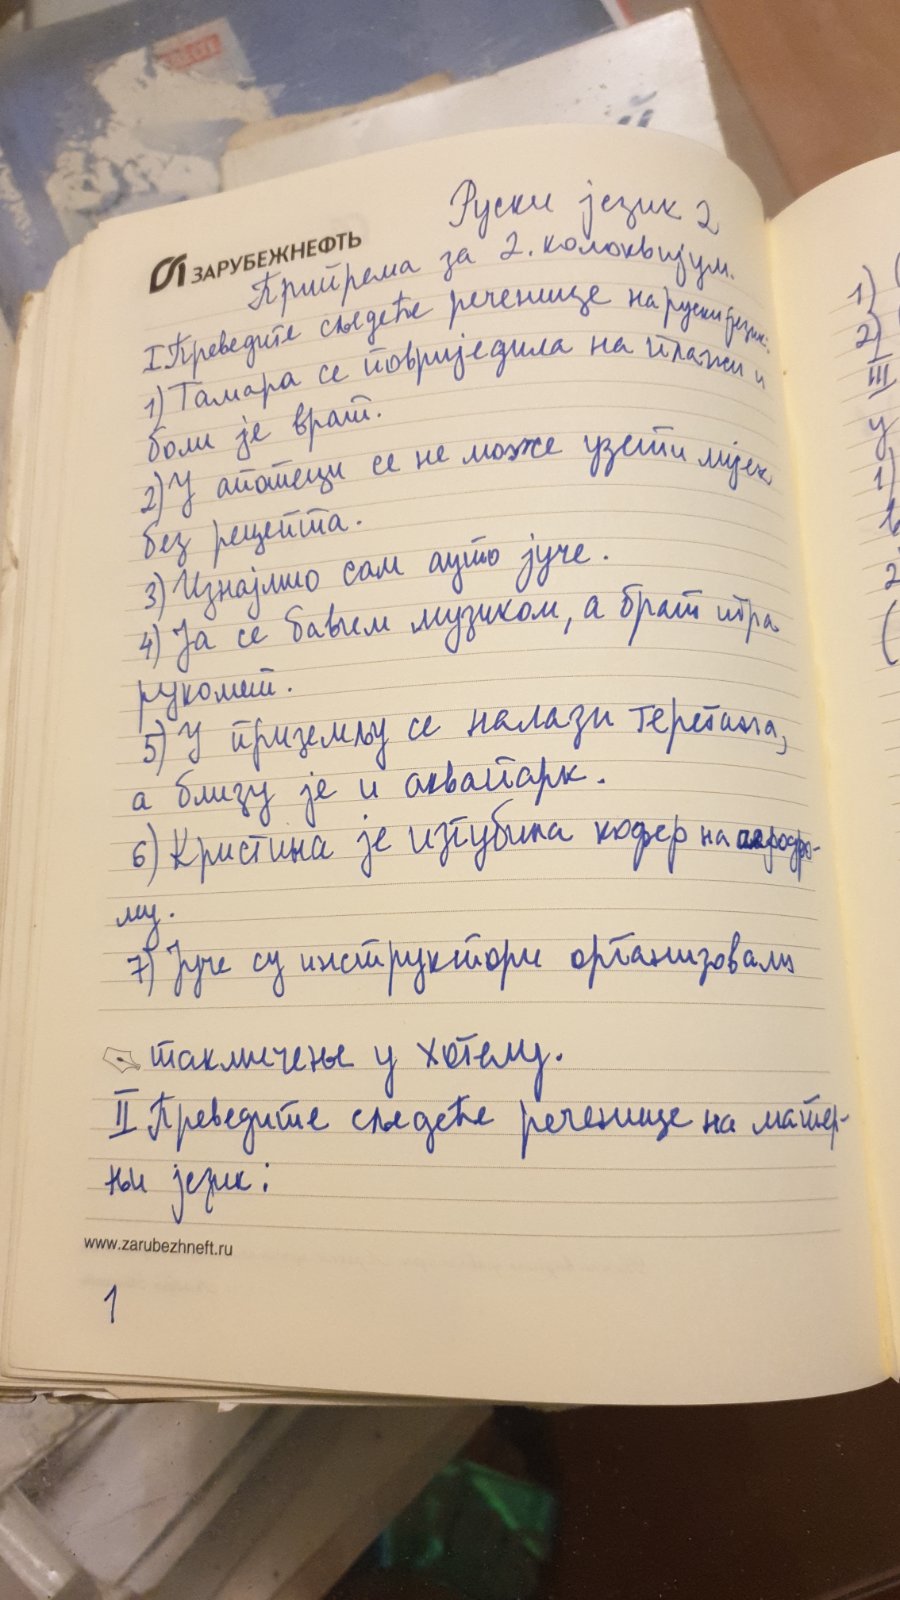 Руски језик 2
ЗАРУБЕЖНЕФТЬ
Припрема за 2. колоквијум.
I Преведите сљедеће реченице на руски језик:
1) Тамара се повриједила на плажи и
боли је врат.
2) У апотеци се не може узети лијек
без рецепта.
3) Изнајмио сам ауто јуче.
4) Ја се бавим музиком, а брат игра
рукомет.
5) У приземљу се налази теретана,
а близу је и аквапарк.
6) Кристина је изгубила кофер на аеродро-
му.
7) Јуче су инструктори организовали
такмичење у хотелу.
II Преведите сљедеће реченице на матер-
њи језик:
www.zarubezhneft.ru
1
1)
2)
III
у
1)
2
(